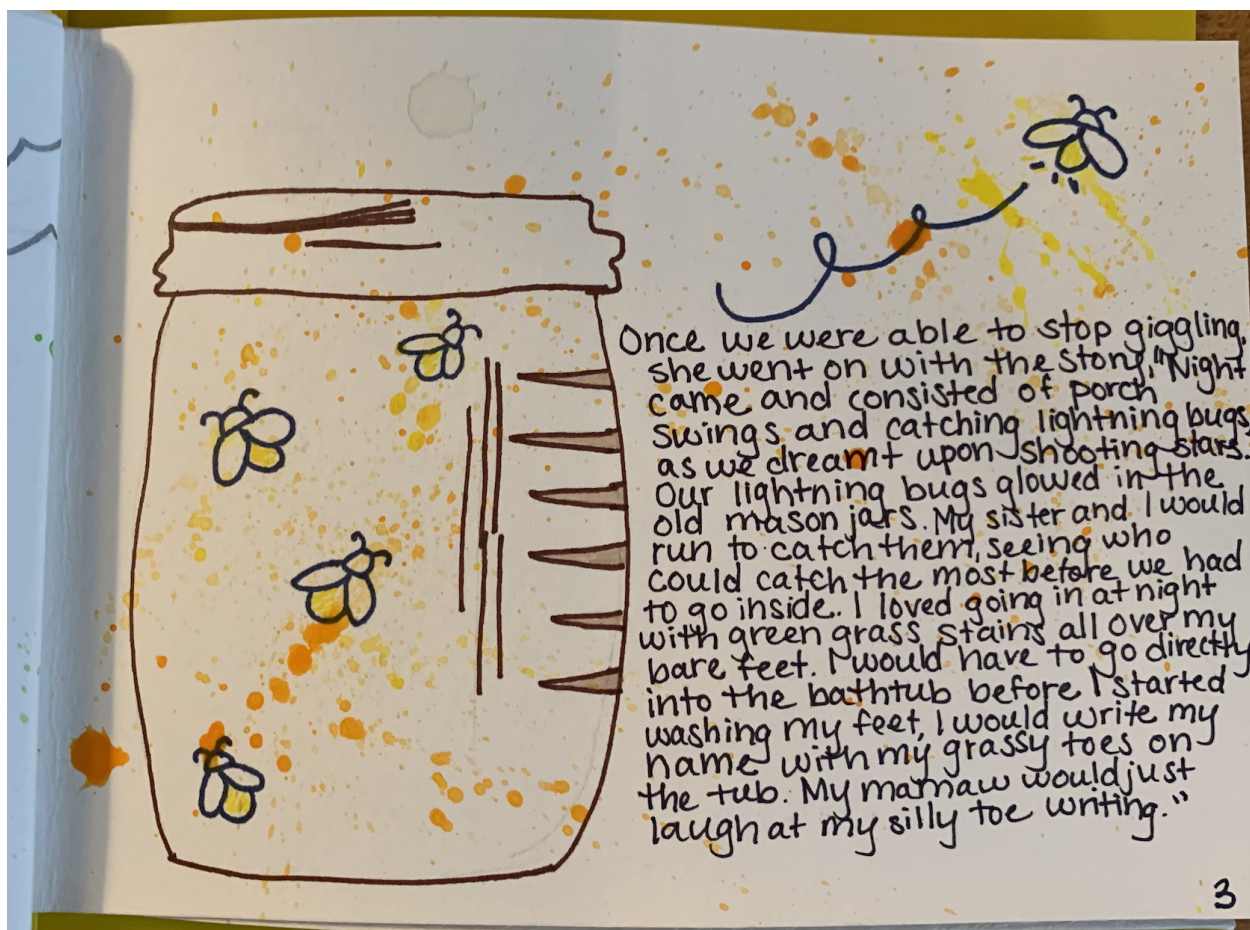 Once we were able to stop giggling,
she went on with the story, "Night
came and consisted of porch
swings and catching lightning bugs,
as we dreamt upon shooting stars.
Our lightning bugs glowed in the
old mason jars. My sister and I would
run to catch them, seeing who
could catch the most before we had
to go inside. I loved going in at night
with green grass stains all over my
bare feet. I would have to go directly
into the bathtub before I started
washing my feet, I would write my
name with my grassy toes on
the tub. My mamaw would just
laugh at my silly toe writing."
3